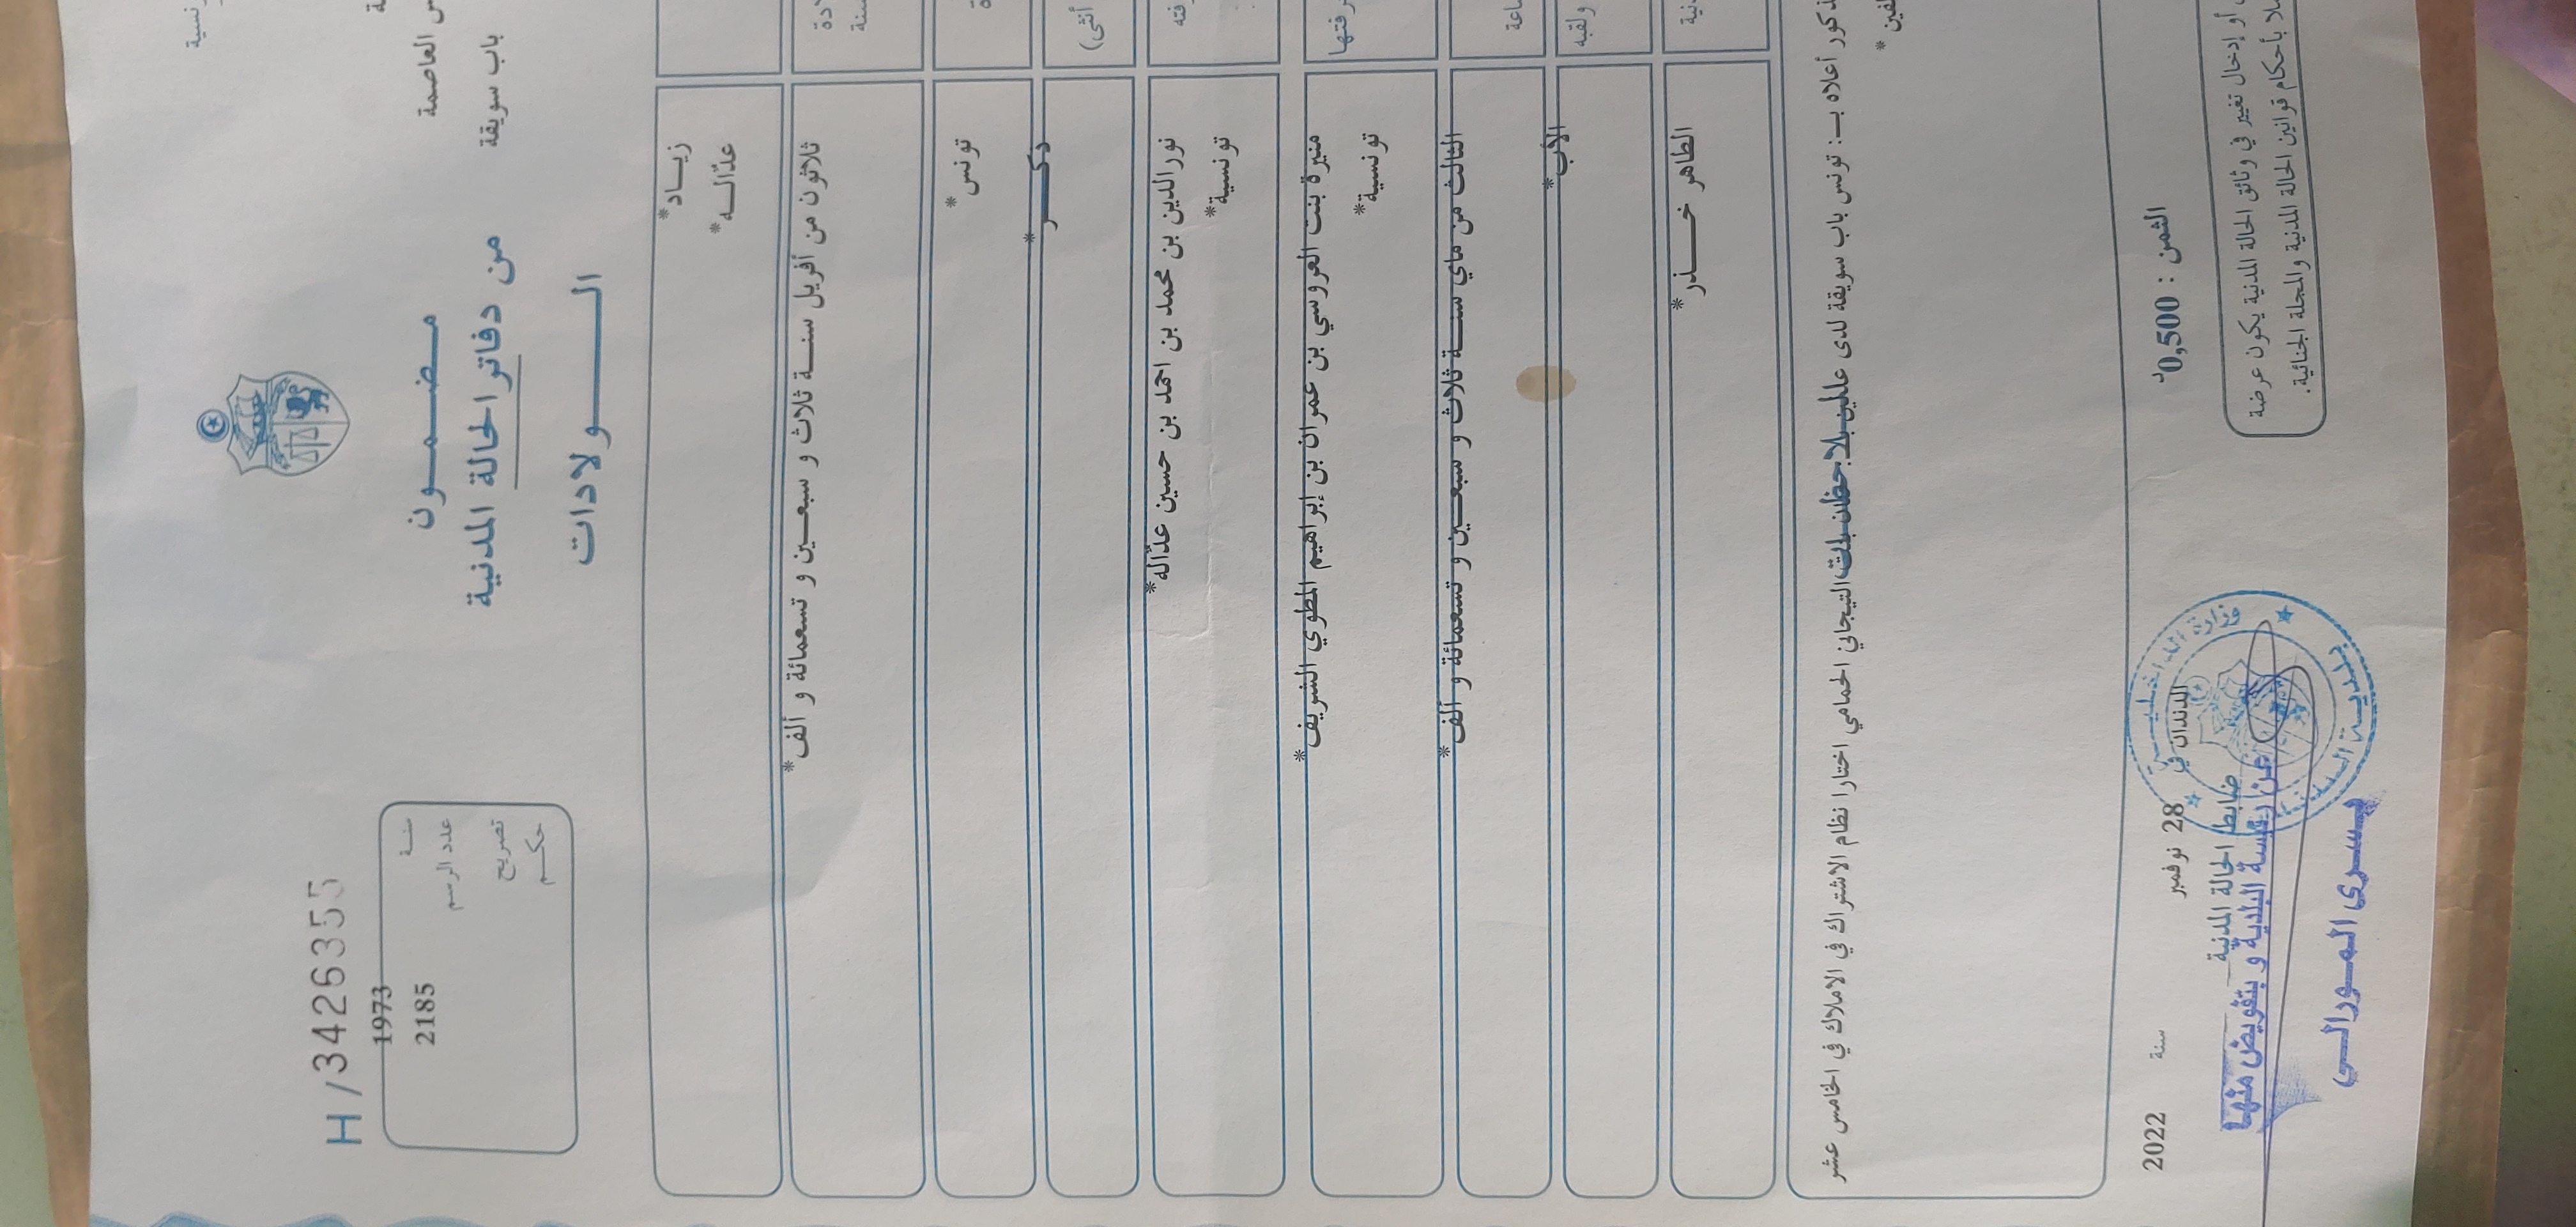 H/3426355
العاصمة
باب سويقة
مضمون
من دفاتر الحالة المدنية
الولادات
سنة 1973
عدد الرسم 2185
تصريح
حكم
زياد*
عدّاله*
ثلاثون من أفريل سنة ثلاث و سبعين و تسعمائة و ألف*
تونس*
(أنثى) ذكر*
نورالدين بن محمد بن احمد بن حسين عدّاله*
تونسية*
منيرة بنت العروسي بن عمران بن إبراهيم المطوي الشريف*
تونسية*
الثالث من ماي سنة ثلاث و سبعين و تسعمائة و ألف*
ولقبه الأب*
الطاهر خذر*
أعلاه بـ: تونس باب سويقة لدى عدلين بلا التيجاني الحمامي اختارا نظام الاشتراك في الاملاك في الخامس عشر
الدندان في 28 نوفمبر سنة 2022
الثمن : 0,500د
ضابط الحالة المدنية
عن رئيسة البلدية و بتفويض منها
يسرى المورالي
وزارة الداخلية
بلدية الدندان
أو إدخال تغيير في وثائق الحالة المدنية يكون عرضة
بأحكام قوانين الحالة المدنية والمجلة الجنائية.